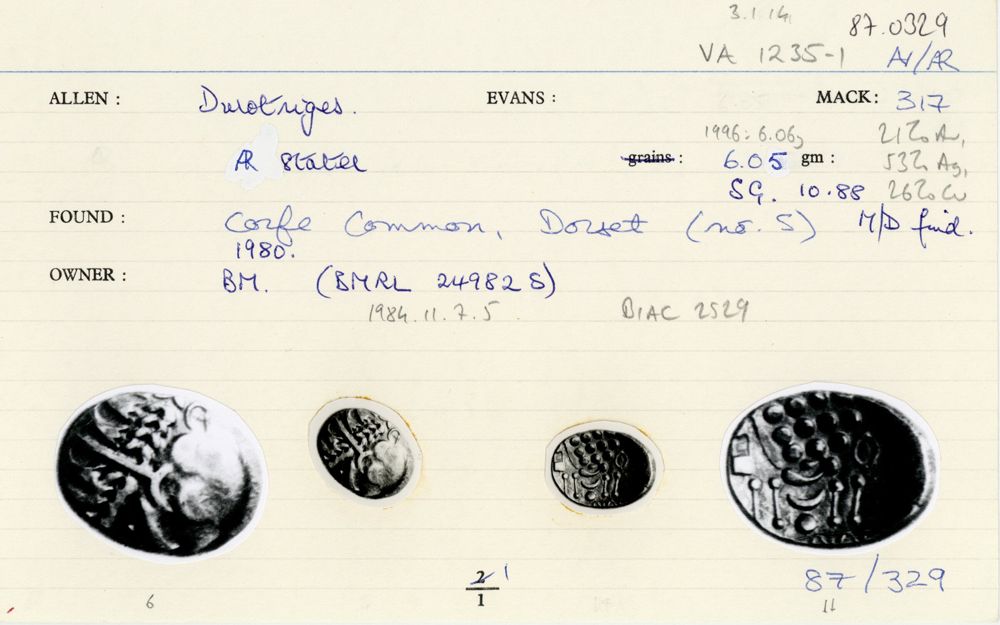 3.1.14
87.0329
VA 1235-1 AV/AR
ALLEN : Durotriges. EVANS : MACK: 317
1996: 6.06g 21% Au,
AR stater grains : 6.05 gm : 53% Ag,
SG. 10.88 26% Cu
FOUND : Corfe Common, Dorset (no. 5) M/D find.
1980.
OWNER : BM. (BMRL 24982 S)
1984.11.7.5 BIAC 2529
2 1
1
87/329
6 11